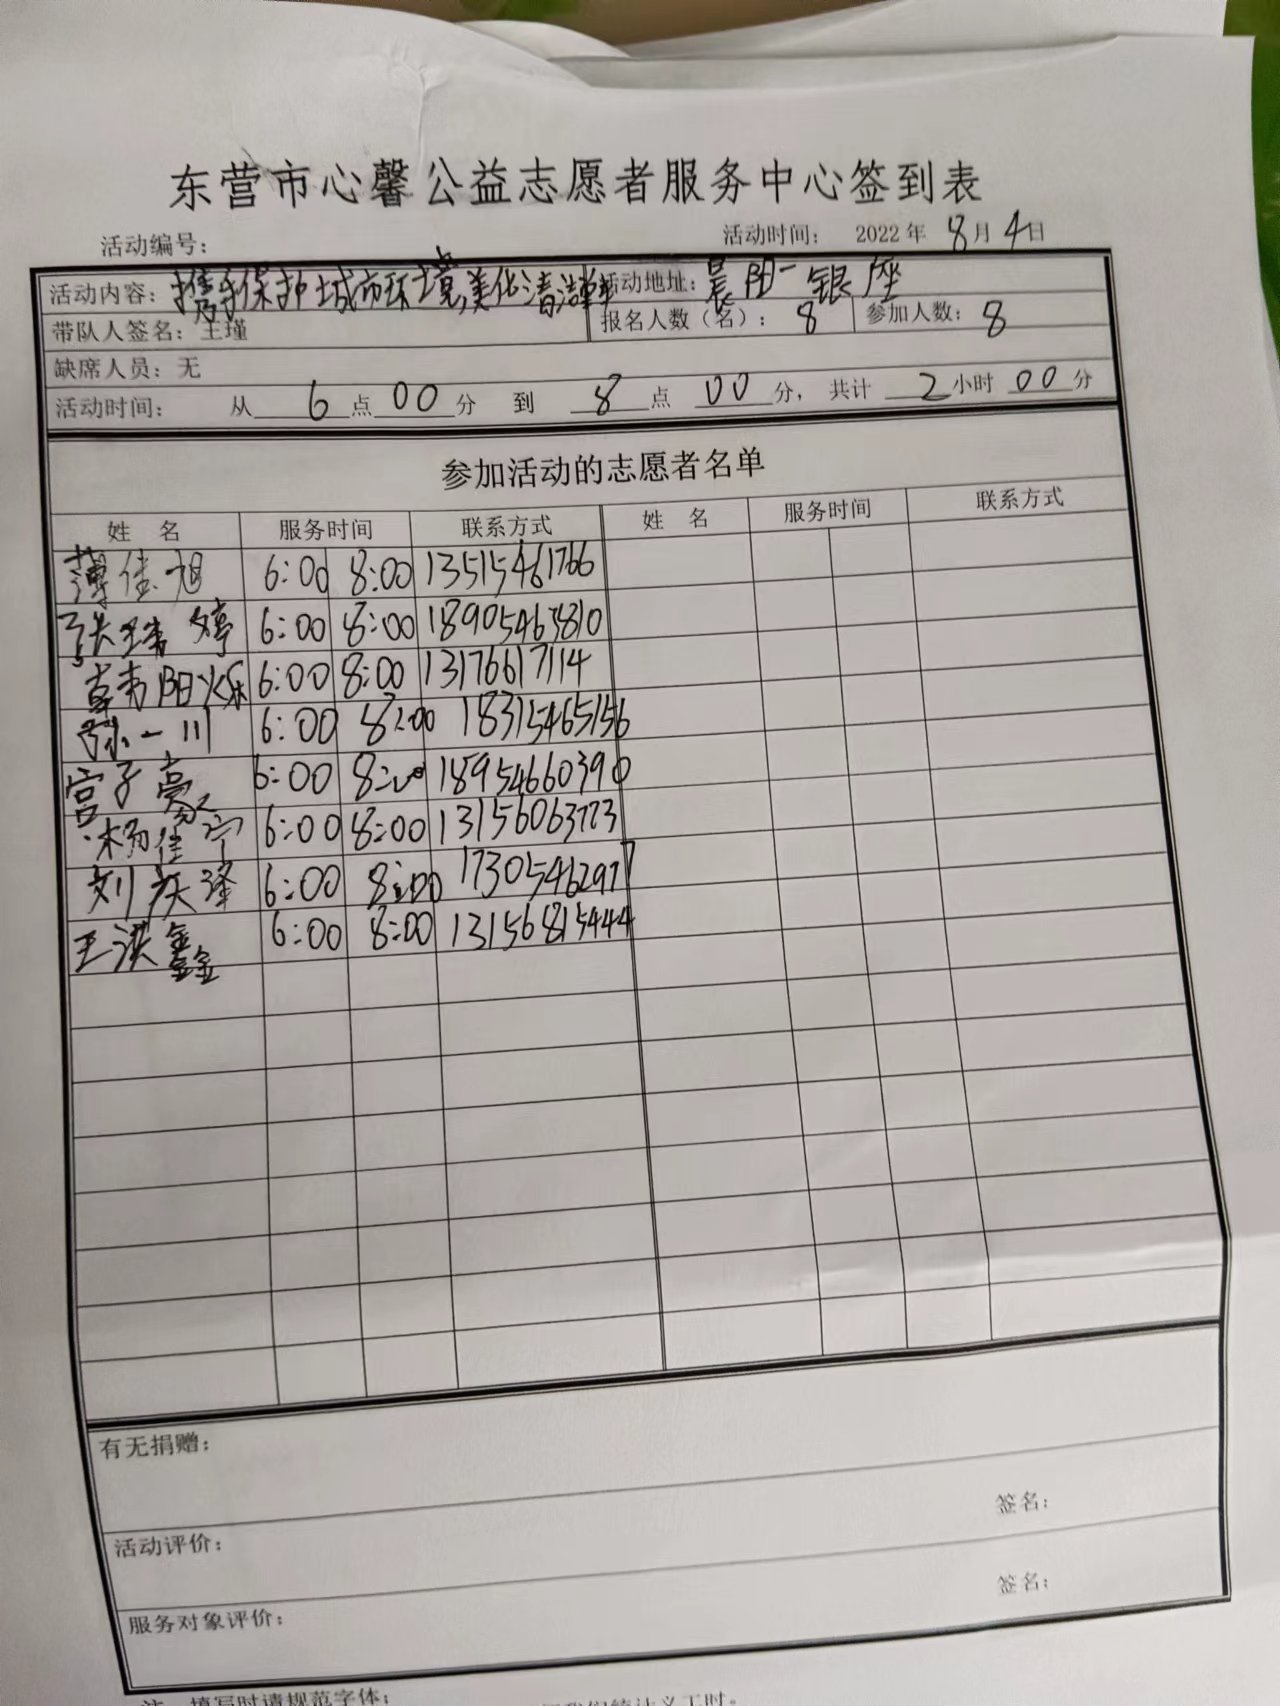 东营市心馨公益志愿者服务中心签到表
活动编号： 活动时间： 2022年 8月4日
活动内容：携手保护城市环境,美化清洁 活动地址：晨阳一银座
带队人签名：王瑾 报名人数（名）：8 参加人数：8
缺席人员：无
活动时间： 从 6 点 00 分 到 8 点 00 分，共计 2 小时 00 分
参加活动的志愿者名单
姓 名 服务时间 联系方式 姓 名 服务时间 联系方式
薄佳旭 6:00 8:00 13515461766
张玮婷 6:00 8:00 18905463810
6:00 8:00 13176617114
孙一川 6:00 8:00 18315465156
宫子豪 6:00 8:00 18954660390
杨佳宁 6:00 8:00 13156063773
刘庆泽 6:00 8:00 17305462977
王洪鑫 6:00 8:00 13156815444
有无捐赠：
签名：
活动评价：
签名：
服务对象评价：
填写时请规范字体；